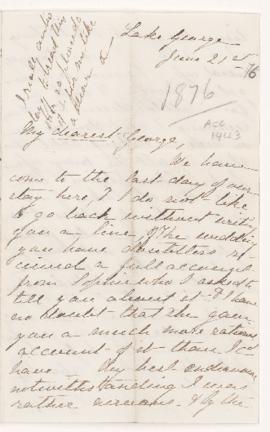 Lake George
June 21st
76
1876
Acc
1443
My dearest George,
We have
come to the last day of our
stay here, & I do not like
to go back without writing
you a line. Of the wedding
you have doubtless re-
ceived a full account
from Sophie who I asked to
tell you about it & I have
no doubt that she gave
you a much more
account of it than I
have — My best endeavours
notwithstanding I was
rather nervous. & by the